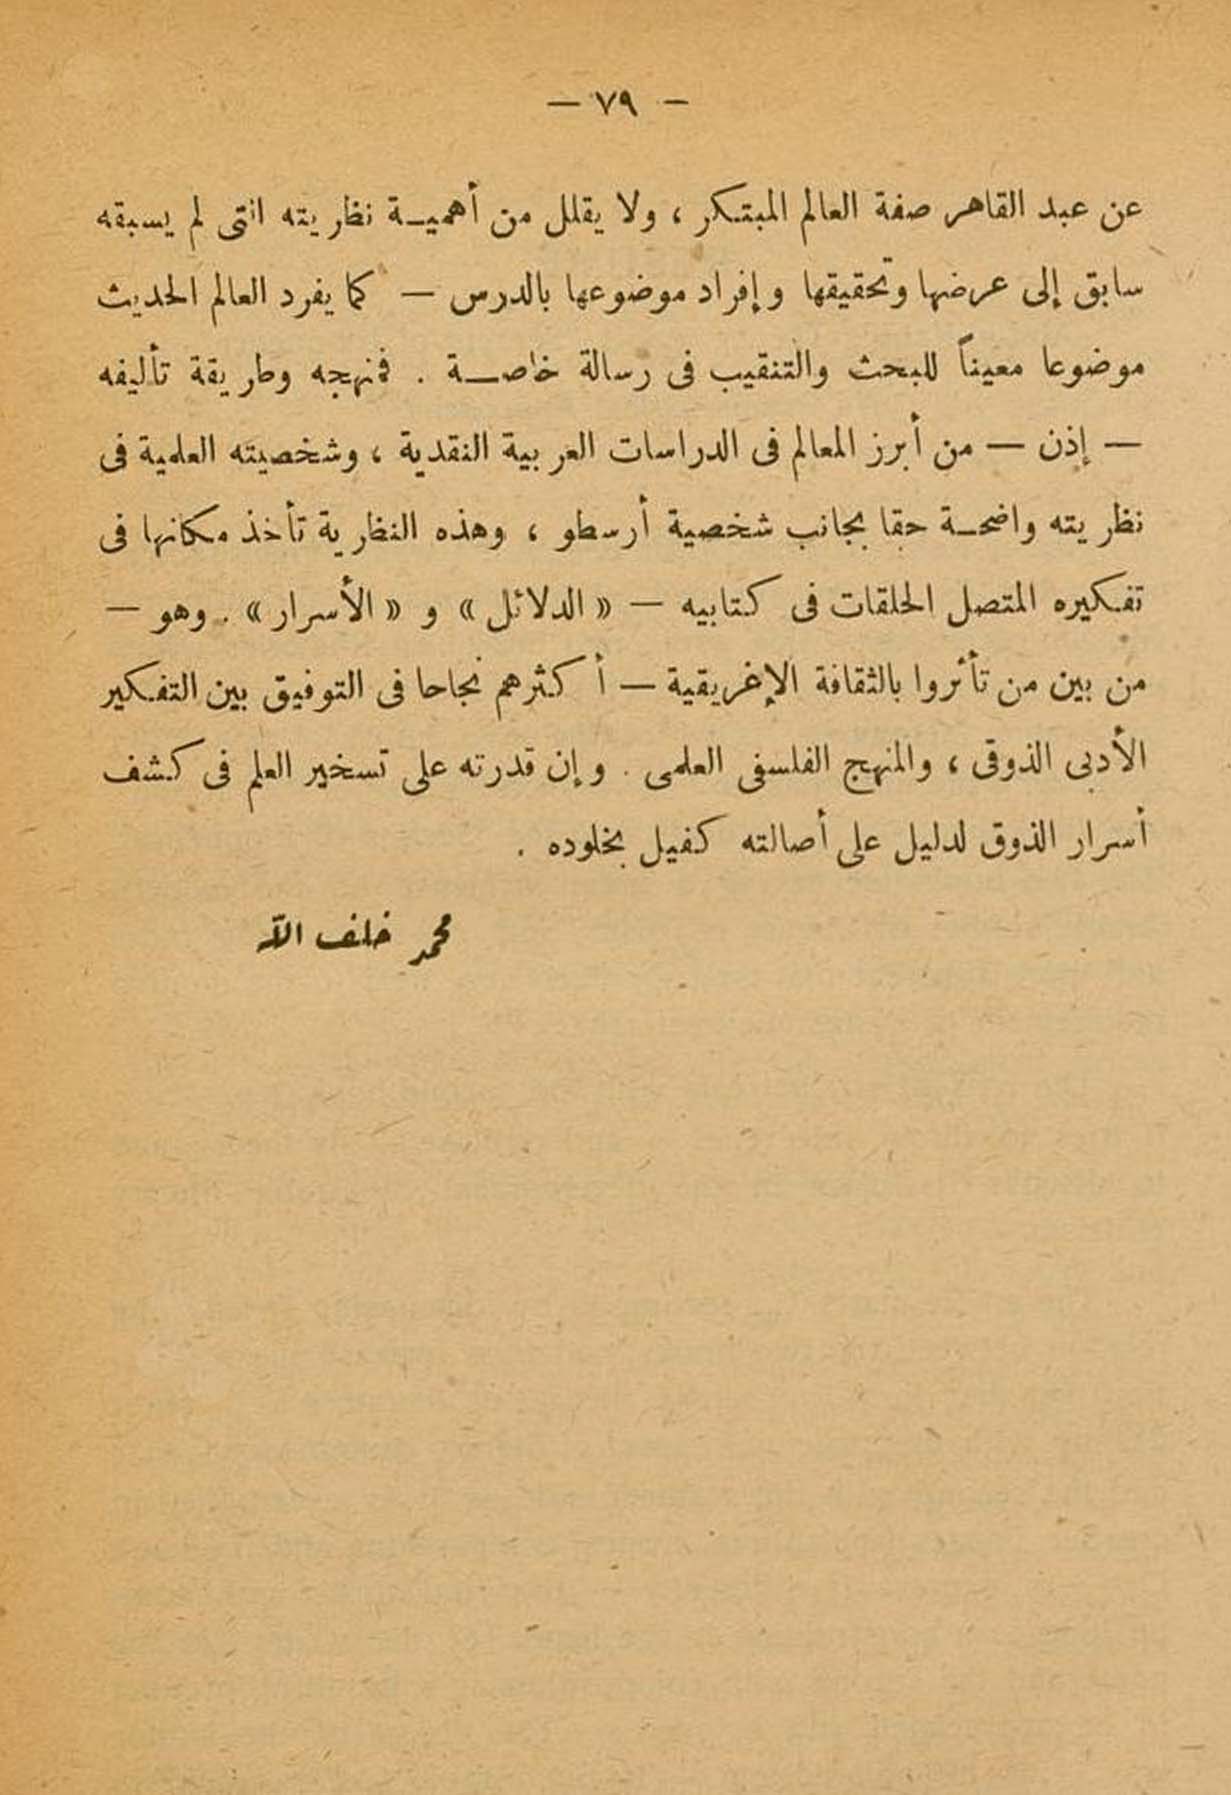 — ٧٩ —
عن عبد القاهر صفة العالم المبتكر ، ولا يقلل من أهميـة نظريته التى لم يسبقه
سابق إلى عرضها وتحقيقها وإفراد موضوعها بالدرس — كما يفرد العالم الحديث
موضوعا معيناً للبحث والتنقيب فى رسالة خاصـة . فمنهجه وطريقة تأليفه
— إذن — من أبرز المعالم فى الدراسات العربية النقدية ، وشخصيته العلمية فى
نظريته واضحـة حقا بجانب شخصية أرسطو ، وهذه النظرية تأخذ مكانها فى
تفكيره المتصل الحلقات فى كتابيه — « الدلائل » و « الأسرار » . وهو —
من بين من تأثروا بالثقافة الإغريقية — أكثرهم نجاحا فى التوفيق بين التفكير
الأدبى الذوقى ، والمنهج الفلسفى العلمى . وإن قدرته على تسخير العلم فى كشف
أسرار الذوق لدليل على أصالته كفيل بخلوده .
محمد خلف الله